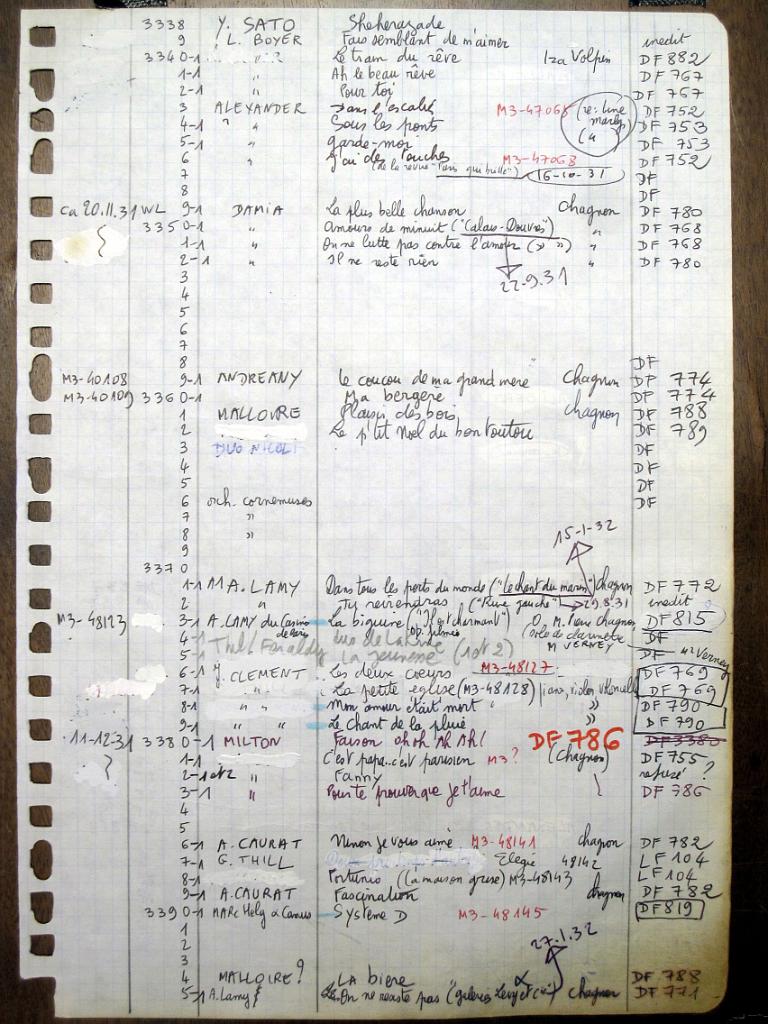 3338 Y. SATO Sheherazade
9 L. BOYER Fais semblant de m'aimer inedit
3340-1 " Le train du rêve Iza Volpin DF 882
1-1 " Ah le beau rêve DF 767
2-1 " Pour toi DF 767
3 ALEXANDER Dans l'escalier M3-47065 (re: Line Marlys DF 752
4-1 " " Sous les ponts (4) DF 753
5-1 " garde-moi DF 753
6 " J'ai des touches M3-47068 DF 752
7 (de la revue "Paris qui brille") 16-10-31 DF
8 DF
ca 20.11.31 WL 9-1 DAMIA La plus belle chanson Chagnon DF 780
3350-1 " Amours de minuit ("Calais-Douvres") " DF 768
1-1 " On ne lutte pas contre l'amour (" ") " DF 768
2-1 " Il ne reste rien " DF 780
3 22-9.31
4
5
6
7
8 DF
M3-40108 9-1 ANDREANY Le coucou de ma grand mère Chagnon DP 774
M3-40109 3360-1 Ma bergère DP 774
1 MALLOIRE Plaisir des bois chagnon DF 788
2 Le p'tit Noel du bon toutou DF 789
3 DUO NICOLI DF
4 DF
5 DF
6 orch. cornemuses DF
7 "
8 "
9 15-1-32
3370
1-1 A. LAMY Dans tous les ports du monde ("Le chant du marin") chagnon DF 772
2 " Tu reviendras ("Rive gauche") 29.8.31 inedit
M3-48123 3-1 A. LAMY du Casino de Paris La biguine ("Il est charmant") O. M. Pierre Chagnon DF 815
4-1 solo de clarinette DF
5-1 Thill Feraldy La jeunesse (1 et 2) M VERNEY DF Mr Verney
6-1 J. CLEMENT Les deux coeurs M3-48127 DF 769
7-1 " " La petite église (M3-48128) piano, violon, violoncelle DF 769
8-1 " " Mon amour était mort " DF 790
9-1 " " Le Chant de la pluie " DF 790
11-12-31 3380-1 MILTON Faison oh oh Ah Ah! DF 786 DF 3380
1-1 C'est papa..c'est parisien M3? (Chagnon) DF 755
2-1 et 2 " Fanny refusé ?
3-1 " Pour te prouver que je t'aime DF 786
4
5
6-1 A. CAURAT Ninon je vous aime M3-48141 chagnon DF 782
7-1 G. THILL Elegie 48142 LF 104
8-1 Fortunio (la maison grise) M3-48143 LF 104
9-1 A. CAURAT Fascination chagnon DF 782
3390-1 MARC Hely & Canus Système D M3-48145 DF819
1
2 27.1.32
3
4 MALLOIRE? LA biere DF 788
5-1 A. Lamy On ne resiste pas ("galeries Levy et cie") chagnon DF 771